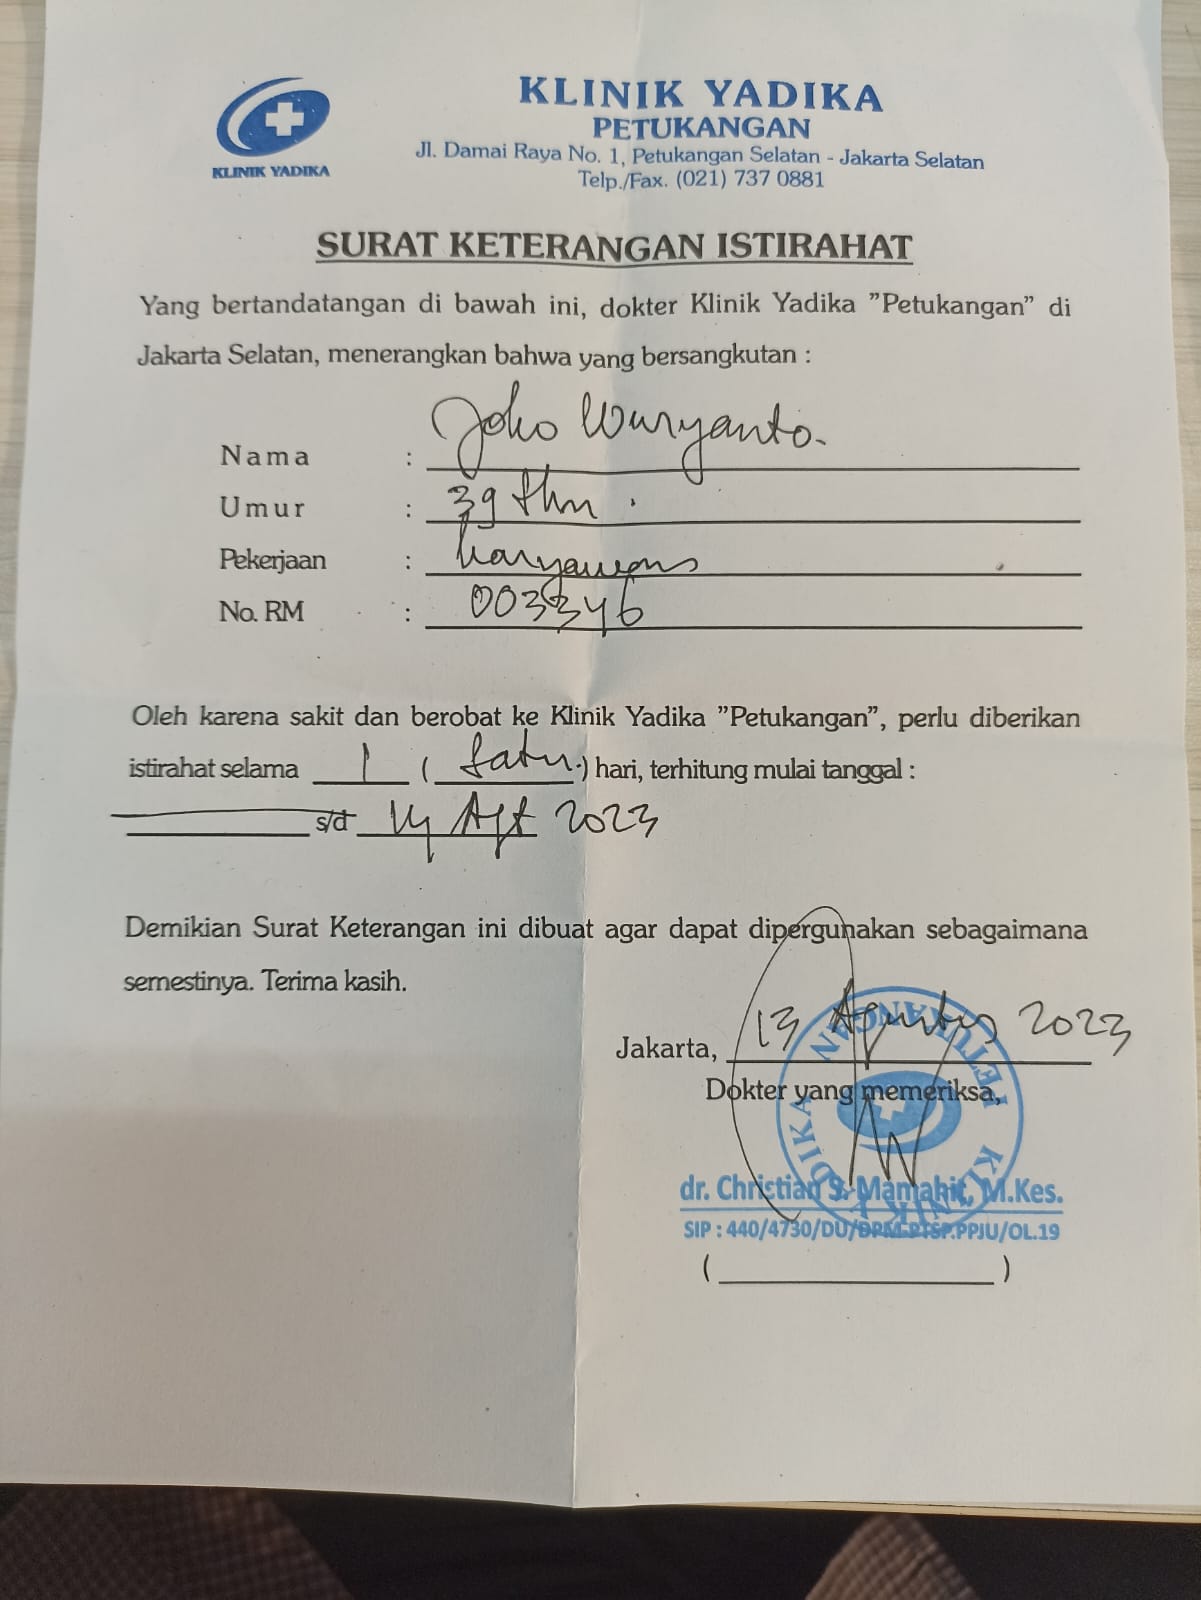 KLINIK YADIKA
KLINIK YADIKA
PETUKANGAN
Jl. Damai Raya No. 1, Petukangan Selatan - Jakarta Selatan
Telp./Fax. (021) 737 0881
SURAT KETERANGAN ISTIRAHAT
Yang bertandatangan di bawah ini, dokter Klinik Yadika "Petukangan" di
Jakarta Selatan, menerangkan bahwa yang bersangkutan :
Nama : Joko Wuryanto.
Umur : 39 thn.
Pekerjaan : karyawan
No. RM : 003346
Oleh karena sakit dan berobat ke Klinik Yadika "Petukangan", perlu diberikan
istirahat selama 1 (satu.) hari, terhitung mulai tanggal :
s/d 14 Agt 2023
Demikian Surat Keterangan ini dibuat agar dapat dipergunakan sebagaimana
semestinya. Terima kasih.
Jakarta, 13 Agustus 2023
Dokter yang memeriksa,
KLINIK YADIKA PETUKANGAN
dr. Christian S. Mamahit, M.Kes.
SIP : 440/4730/DU/DRM-PTSP.PPJU/OL.19
( )